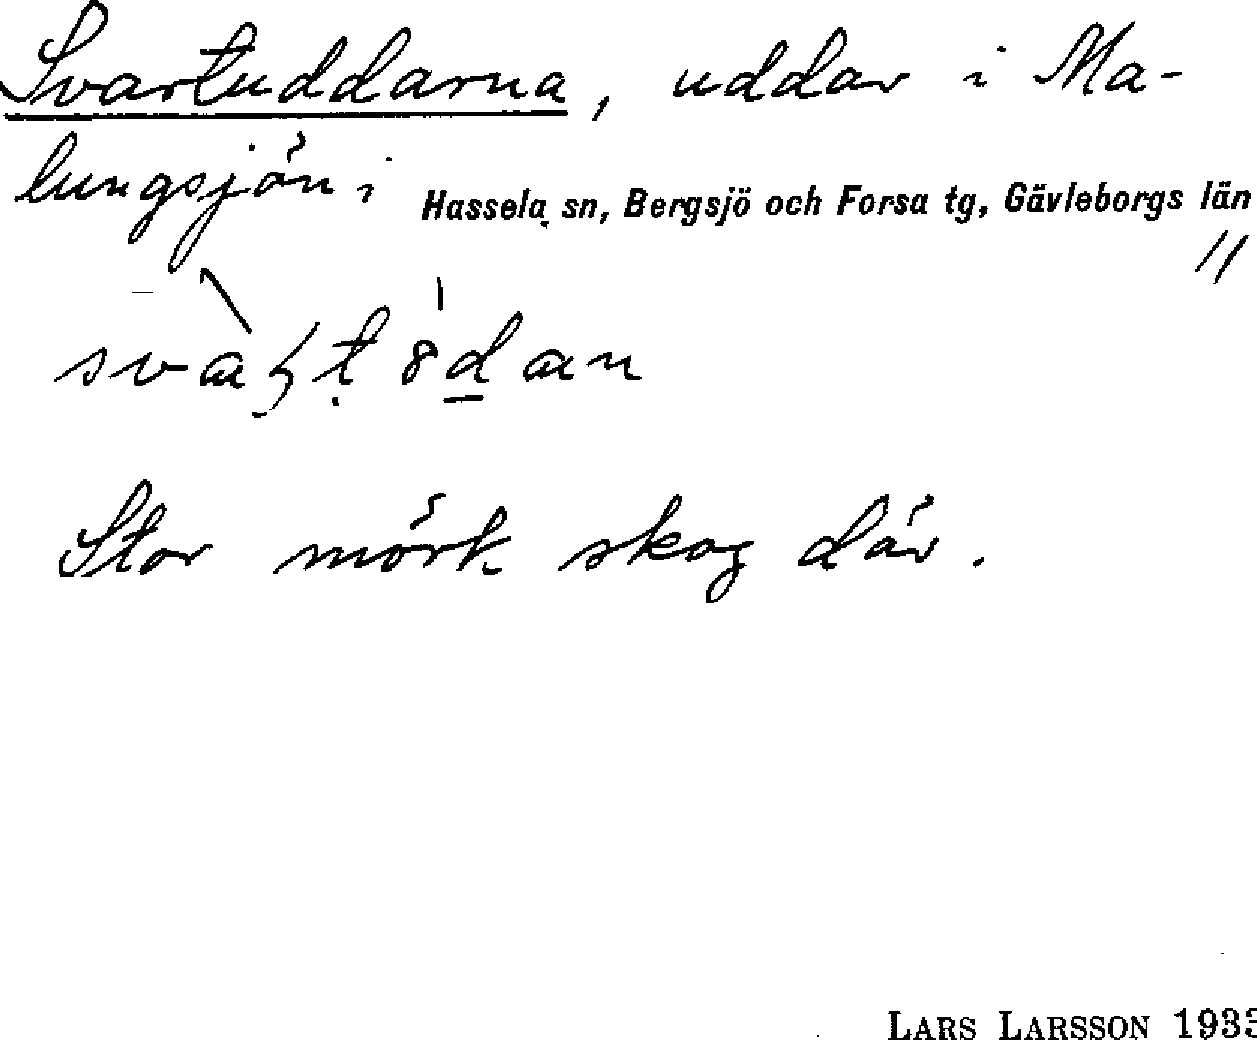 Svartuddarna, uddar i Ma-
lungsjön i Hassela sn, Bergsjö och Forsa tg, Gävleborgs län
Stor mörk skog där.
LARS LARSSON